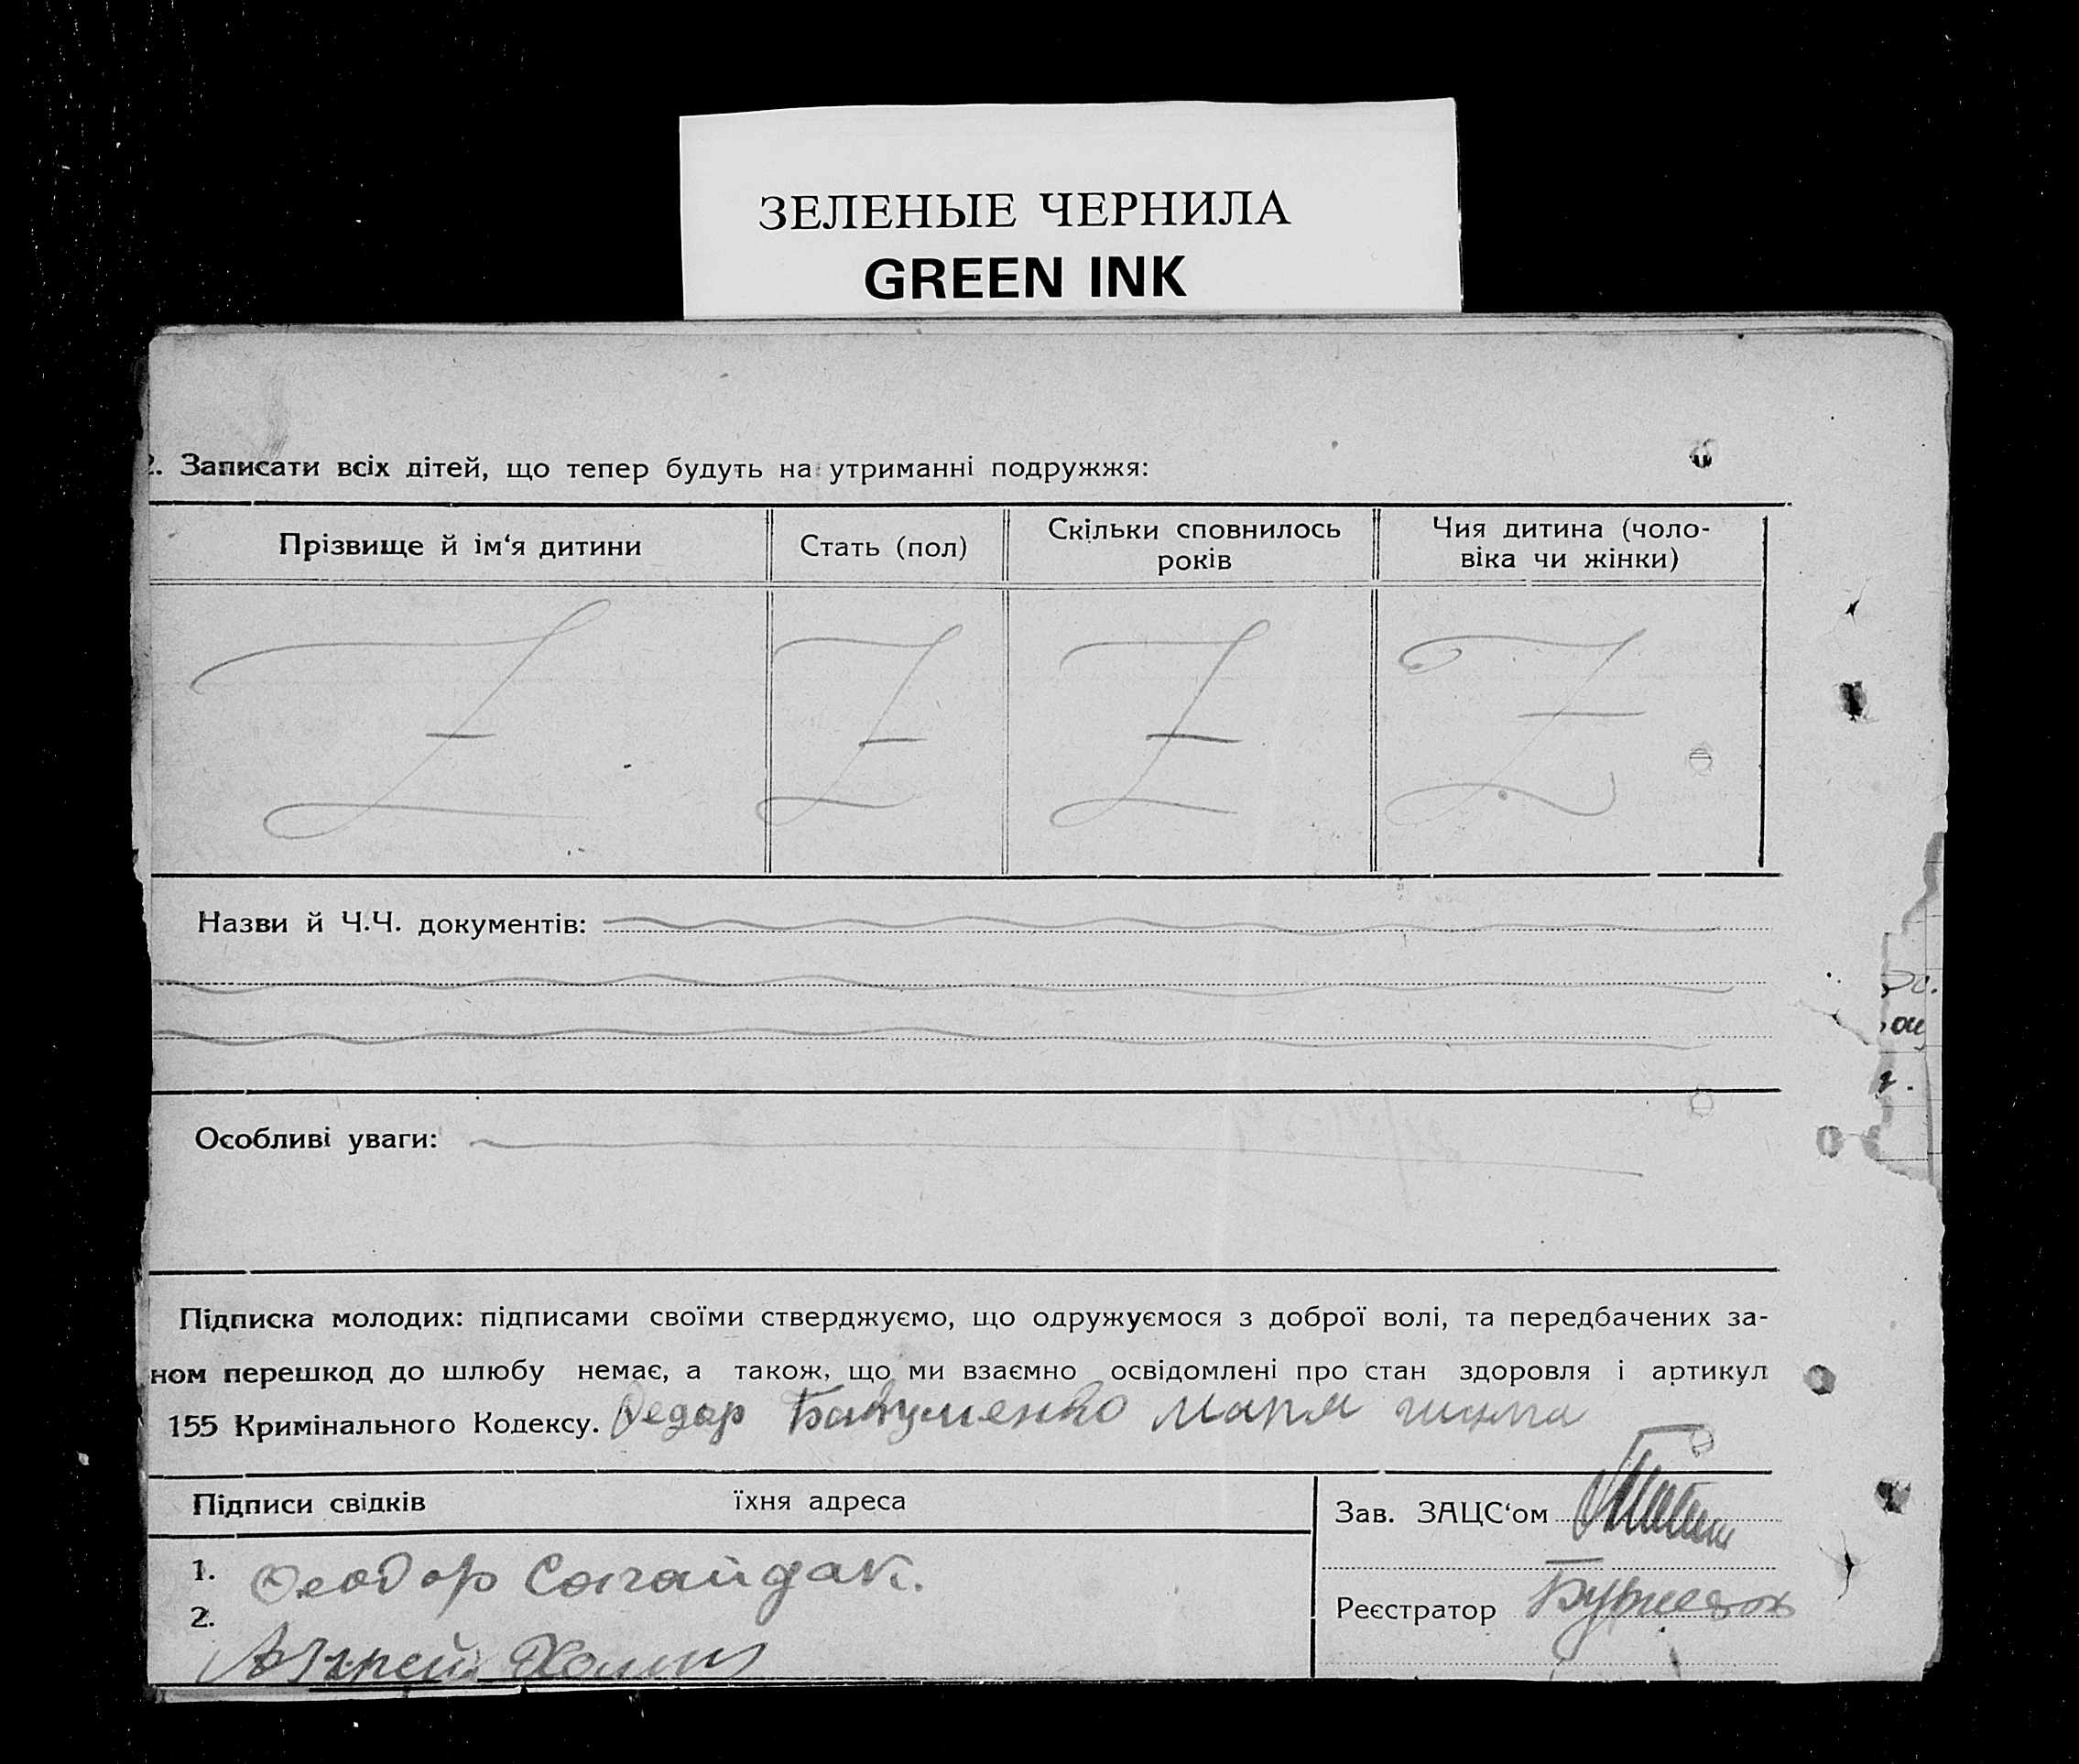 ЗЕЛЕНЫЕ ЧЕРНИЛА
GREEN INK
2. Записати всіх дітей, що тепер будуть на утриманні подружжя:
Прізвище й ім‘я дитини
Стать (пол)
Скільки сповнилось
років
Чия дитина (чоло-
віка чи жінки)
Назви й Ч.Ч. документів:
Особливі уваги:
Підписка молодих: підписами своїми стверджуємо, що одружуємося з доброї волі, та передбачених за-
ном перешкод до шлюбу немає, а також, що ми взаємно освідомлені про стан здоровля і артикул
155 Кримінального Кодексу. Федор Мария
Підписи свідків їхня адреса
Зав. ЗАЦС‘ом
1. Феодор Сагайдак.
2. Андрей
Реєстратор